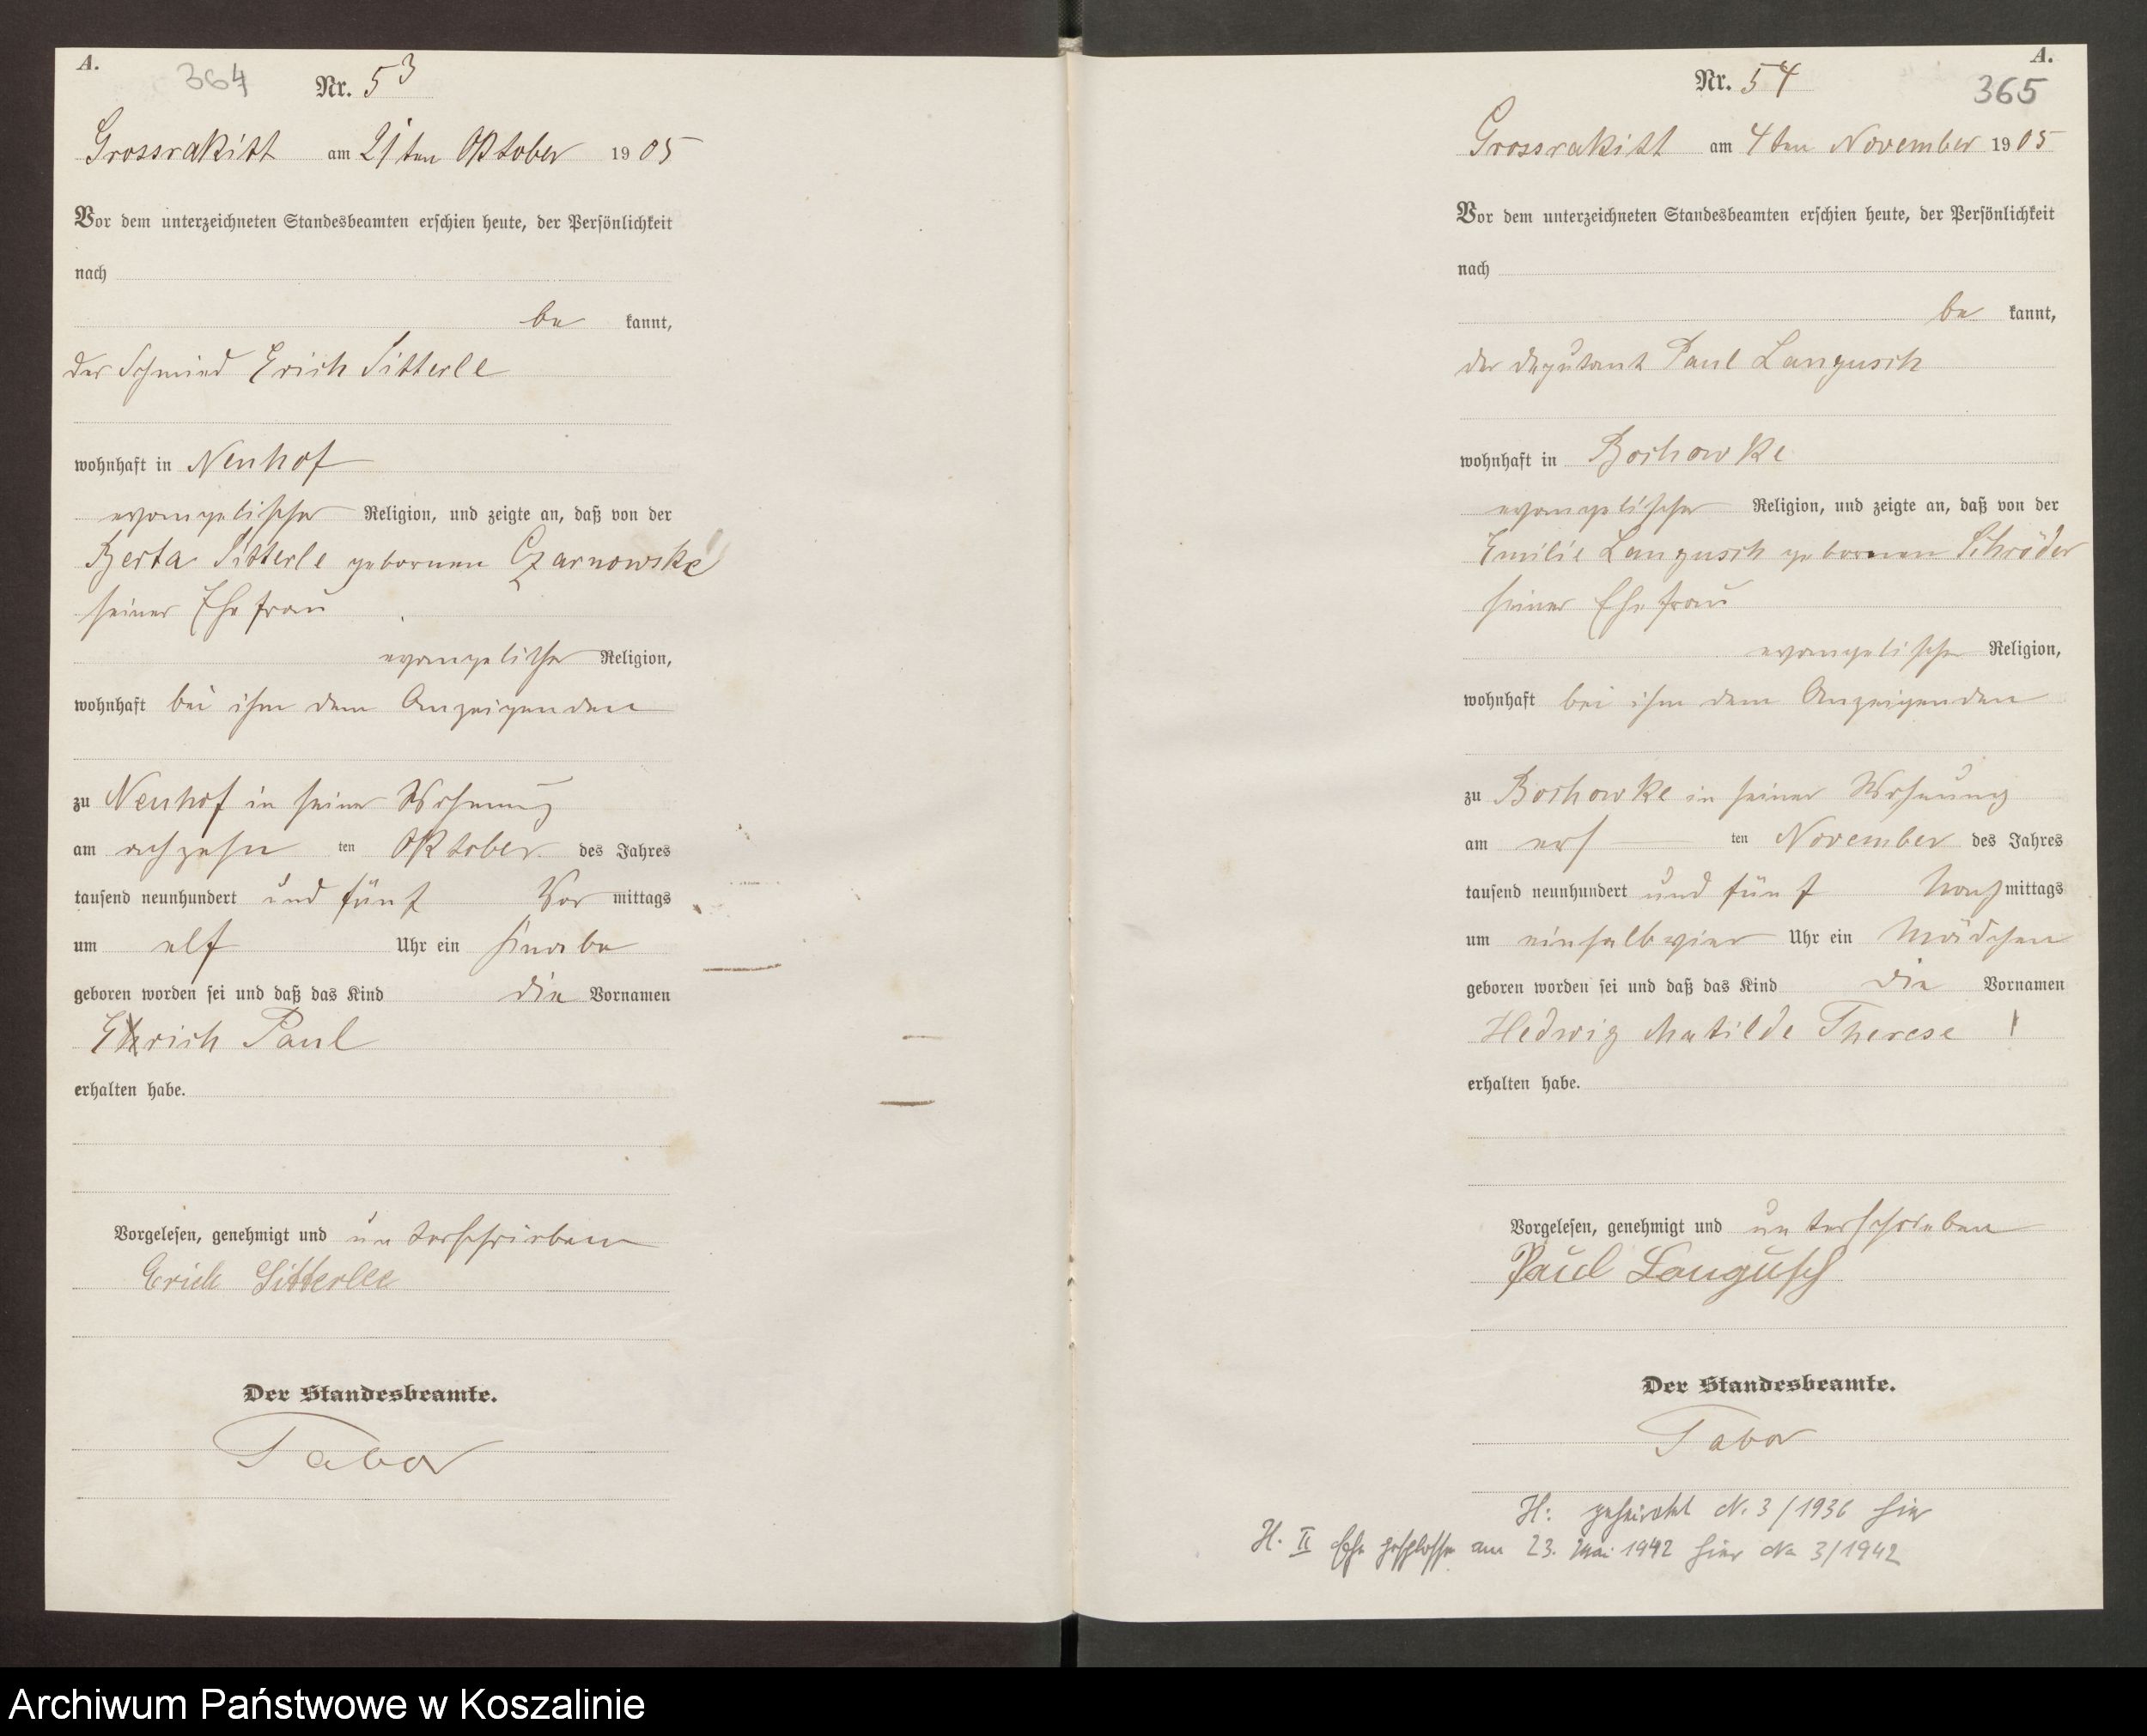 A.
364
Nr. 53
Grossrakitt am 21ten Oktober 1905
Vor dem unterzeichneten Standesbeamten erschien heute, der Persönlichkeit
nach
be kannt,
der Schmied Erich Sitterle
wohnhaft in Neuhof
evangelischer Religion, und zeigte an, daß von der
Berta Sitterle gebornen Czarnowske
seiner Ehefrau
evangelischer Religion,
wohnhaft bei ihm dem Anzeigenden
zu Neuhof in seiner Wohnung
am achzehn ten Oktober des Jahres
tausend neunhundert und fünf Vor mittags
um elf Uhr ein Knabe
geboren worden sei und daß das Kind die Vornamen
Erich Paul
erhalten habe.
Vorgelesen, genehmigt und unterschrieben
Erich Sitterlee
Der Standesbeamte.
Tabor
A.
Nr. 54
365
Grossrakitt am 4ten November 1905
Vor dem unterzeichneten Standesbeamten erschien heute, der Persönlichkeit
nach
be kannt,
der Deputant Paul Langusch
wohnhaft in Bochowke
evangelischer Religion, und zeigte an, daß von der
Emilie Langusch gebornen Schröder
seiner Ehefrau
evangelischer Religion,
wohnhaft bei ihm dem Anzeigenden
zu Bochowke in seiner Wohnung
am ers ten November des Jahres
tausend neunhundert und fünf Nach mittags
um einhalbvier Uhr ein Mädchen
geboren worden sei und daß das Kind die Vornamen
Hedwig Matilde Therese
erhalten habe.
Vorgelesen, genehmigt und unterschrieben
Paul Langusch
Der Standesbeamte.
Tabor
H: geheiratet N. 3/1936 hier
H. II Ehe geschlossen am 23. Mai 1942 hier No 3/1942
Archiwum Państwowe w Koszalinie